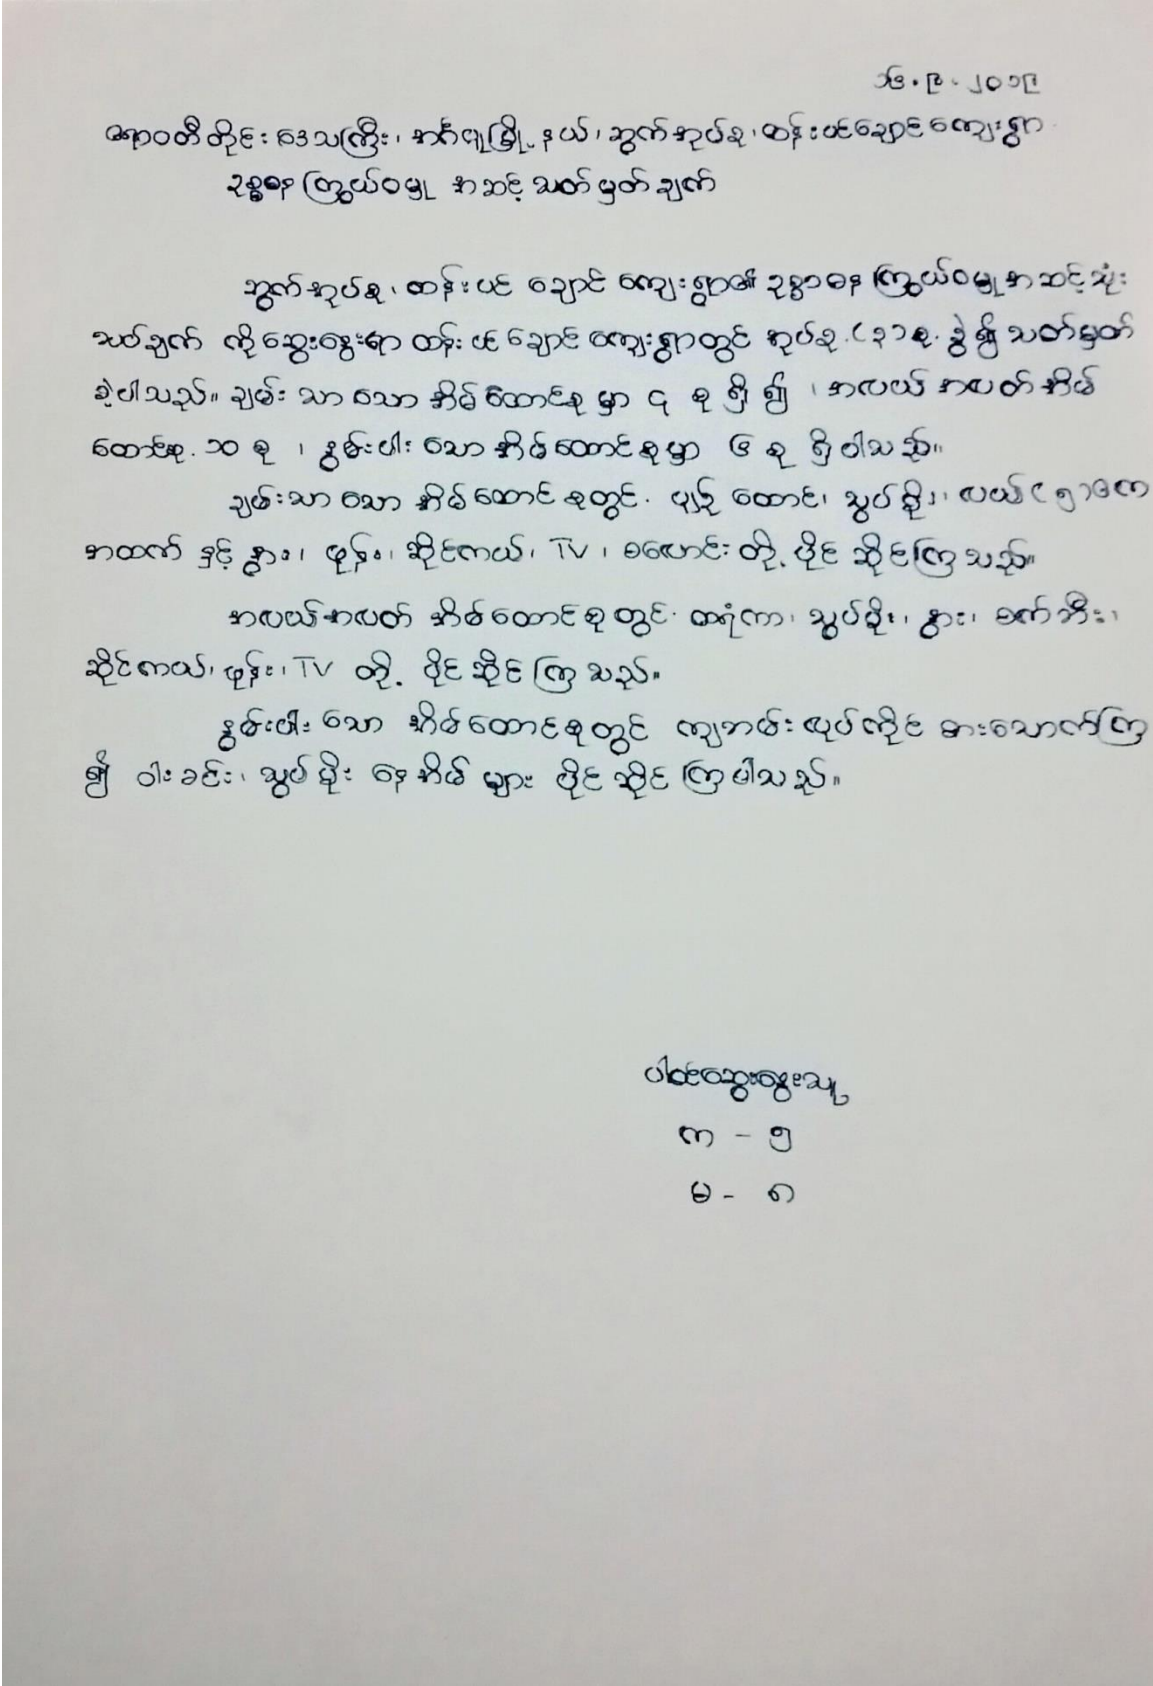 ၁၆.၉.၂၀၁၉
ဧရာဝတီတိုင်းဒေသကြီး၊ အင်္ဂပူမြို့နယ်၊ ဆွက်အုပ်စု၊ ထန်းပင်ချောင်ကျေးရွာ
ဥစ္စဓန ကြွယ်ဝမှု အဆင့် သတ်မှတ်ချက်
ဆွက်အုပ်စု၊ ထန်းပင် ချောင် ကျေးရွာ၏ ဥစ္စာဓန ကြွယ်ဝမှု အဆင့်သုံး
သပ်ချက် ကိုဆွေးနွေးရာ ထန်းပင်ချောင်ကျေးရွာတွင် အုပ်စု (၃) စု ခွဲ၍ သတ်မှတ်
ခဲ့ပါသည်။ ချမ်းသာသော အိမ်ထောင်စုမှာ ၎ စု ရှိ၍ ၊ အလယ်အလတ်အိမ်
ထောင်စု ၁၀ စု ၊ နွမ်းပါးသောအိမ်ထောင်စုမှာ ၆ စု ရှိပါသည်။
ချမ်းသာသော အိမ်ထောင်စုတွင် ပျဉ်ထောင်၊ သွပ်မိုး၊ လယ် (၅) ဧက
အထက် နှင့် နွား၊ ဖုန်း၊ ဆိုင်ကယ်၊ TV ၊ စလောင်း တို့ ပိုင်ဆိုင်ကြသည်။
အလယ်အလတ် အိမ်ထောင်စုတွင် ထရံကာ၊ သွပ်မိုး၊ နွား၊ စက်ဘီး၊
ဆိုင်ကယ်၊ ဖုန်း၊ TV တို့ ပိုင်ဆိုင်ကြသည်။
နွမ်းပါးသော အိမ်ထောင်စုတွင် ကျဘမ်းလုပ်ကိုင် စားသောက်ကြ
၍ ဝါးခင်း၊ သွပ်မိုး နေအိမ်များ ပိုင်ဆိုင်ကြပါသည်။
ပါဝင်ဆွေးနွေးသူ
က - ၅
မ - ၈